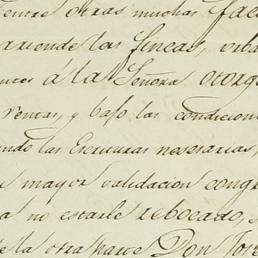 entre otras muchas fac
arriende las fincas, urba
à la Señora otorg
rencas, y bajo las condicion
ndo las Escrituras necesarias,
mayor validacion cong
a no estarle rebocado,
de la otra parte Don Jose